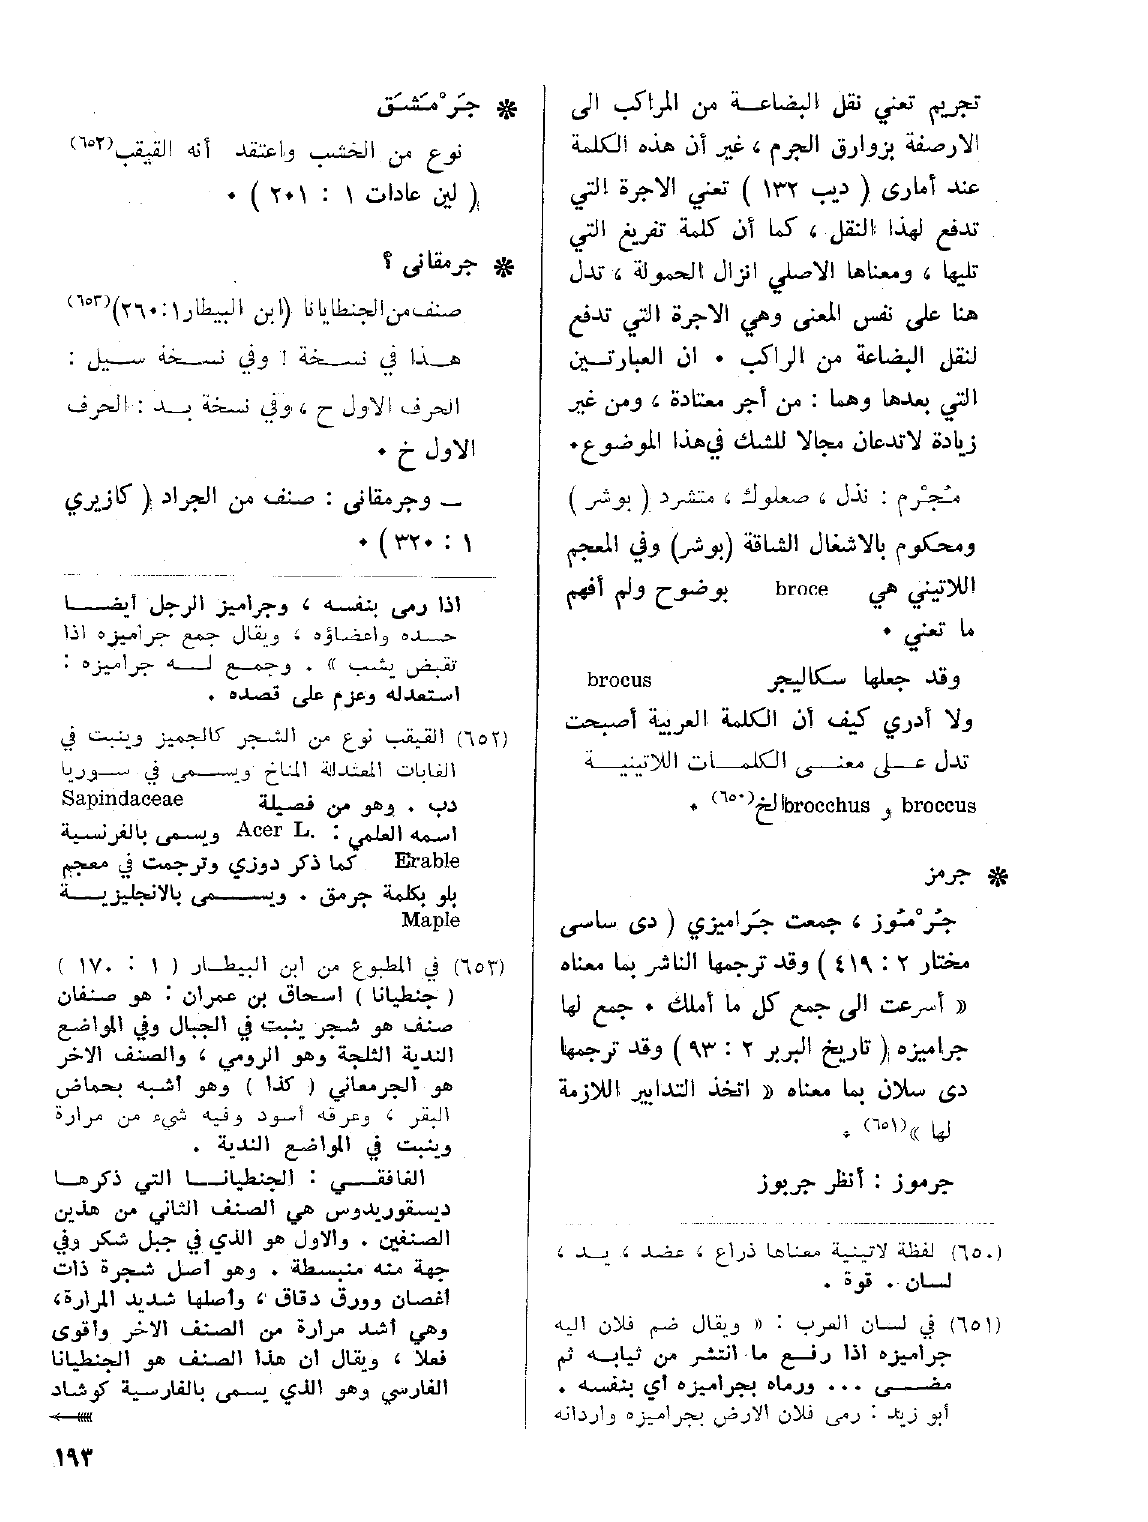 تجريم تعني نقل البضاعة من المراكب الى
الارصفة بزوارق الجرم ، غير أن هذه الكلمة
عند أمارى ( ديب ١٣٢ ) تعني الاجرة التي
تدفع لهذا النقل ، كما أن كلمة تفريغ التي
تليها ، ومعناها الاصلي انزال الحمولة ، تدل
هنا على نفس المعنى وهي الاجرة التي تدفع
لنقل البضاعة من الراكب ٠ ان العبارتين
التي بعدها وهما : من أجر معتادة ، ومن غير
زيادة لاتدعان مجالا للشك في هذا الموضوع٠
مُجْرم : نذل ، صعلوك ، متشرد ( بوشر )
ومحكوم بالاشغال الشاقة (بوشر) وفي المعجم
اللاتيني هي broce بوضوح ولم أفهم
ما تعني ٠
وقد جعلها سكاليجر brocus
ولا أدري كيف أن الكلمة العربية أصبحت
تدل على معنى الكلمات اللاتينية
broccus و brocchus الخ(٦٥٠) ٠
❋ جرمز
جُرْمُوز ، جمعت جَراميزي ( دى ساسى
مختار ٢ : ٤١٩ ) وقد ترجمها الناشر بما معناه
« أسرعت الى جمع كل ما أملك ٠ جمع لها
جراميزه ( تاريخ البربر ٢ : ٩٣ ) وقد ترجمها
دى سلان بما معناه « اتخذ التدابير اللازمة
لها »(٦٥١) ٠
جرموز : أنظر جربوز
(٦٥٠) لفظة لاتينية معناها ذراع ، عضد ، يد ،
لسان . قوة .
(٦٥١) في لسان العرب : « ويقال ضم فلان اليه
جراميزه اذا رفع ما انتشر من ثيابه ثم
مضى ... ورماه بجراميزه أي بنفسه .
أبو زيد : رمى فلان الارض بجراميزه وأردانه
❋ جَرْمَشَق
نوع من الخشب واعتقد أنه القيقب(٦٥٢)
( لين عادات ١ : ٢٠١ ) ٠
❋ جرمقانى ؟
صنف من الجنطايانا (ابن البيطار١ : ٢٦٠)(٦٥٣)
هذا في نسخة ا وفي نسخة سيل :
الحرف الاول ح ، وفي نسخة بد : الحرف
الاول خ ٠
ـ وجرمقانى : صنف من الجراد ( كازيري
١ : ٣٢٠ ) ٠
اذا رمى بنفسه ، وجراميز الرجل أيضا
جسده واعضاؤه ، ويقال جمع جراميزه اذا
تقبض يثب » . وجمع له جراميزه :
استعدله وعزم على قصده .
(٦٥٢) القيقب نوع من الشجر كالجميز وينبت في
الغابات المعتدلة المناخ ويسمى في سوريا
دب . وهو من فصيلة Sapindaceae
اسمه العلمي : Acer L. ويسمى بالفرنسية
Erable كما ذكر دوزي وترجمت في معجم
بلو بكلمة جرمق . ويسمى بالانجليزية
Maple
(٦٥٣) في المطبوع من ابن البيطار ( ١ : ١٧٠ )
( جنطيانا ) اسحاق بن عمران : هو صنفان
صنف هو شجر ينبت في الجبال وفي المواضع
الندية الثلجة وهو الرومي ، والصنف الاخر
هو الجرمعاني ( كذا ) وهو أشبه بحماض
البقر ، وعرقه أسود وفيه شيء من مرارة
وينبت في المواضع الندية .
الغافقي : الجنطيانا التي ذكرها
ديسقوريدوس هي الصنف الثاني من هذين
الصنفين . والاول هو الذي في جبل شكر وفي
جهة منه منبسطة . وهو أصل شجرة ذات
أغصان وورق دقاق ، وأصلها شديد المرارة،
وهي أشد مرارة من الصنف الاخر وأقوى
فعلا ، ويقال ان هذا الصنف هو الجنطيانا
الفارسي وهو الذي يسمى بالفارسية كوشاد
١٩٣